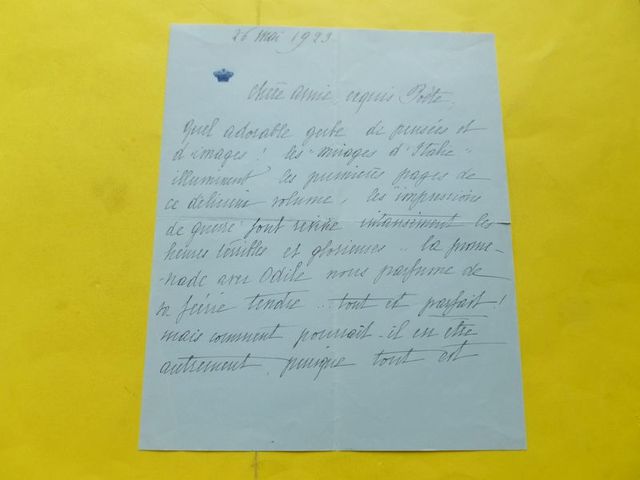 26 mai 1923
Chère amie, exquis Poète,
Quel adorable gerbe de pensées et
d'images ! les "mirages d'Italie"
illuminent les premières pages de
ce délicieux volume, les "impressions
de guerre" font revivre intensément les
heures terribles et glorieuses.. la prome-
-nade avec Odile nous parfume de
sa féerie tendre... tout est parfait !
mais comment pourrait-il en être
autrement, puisque tout est